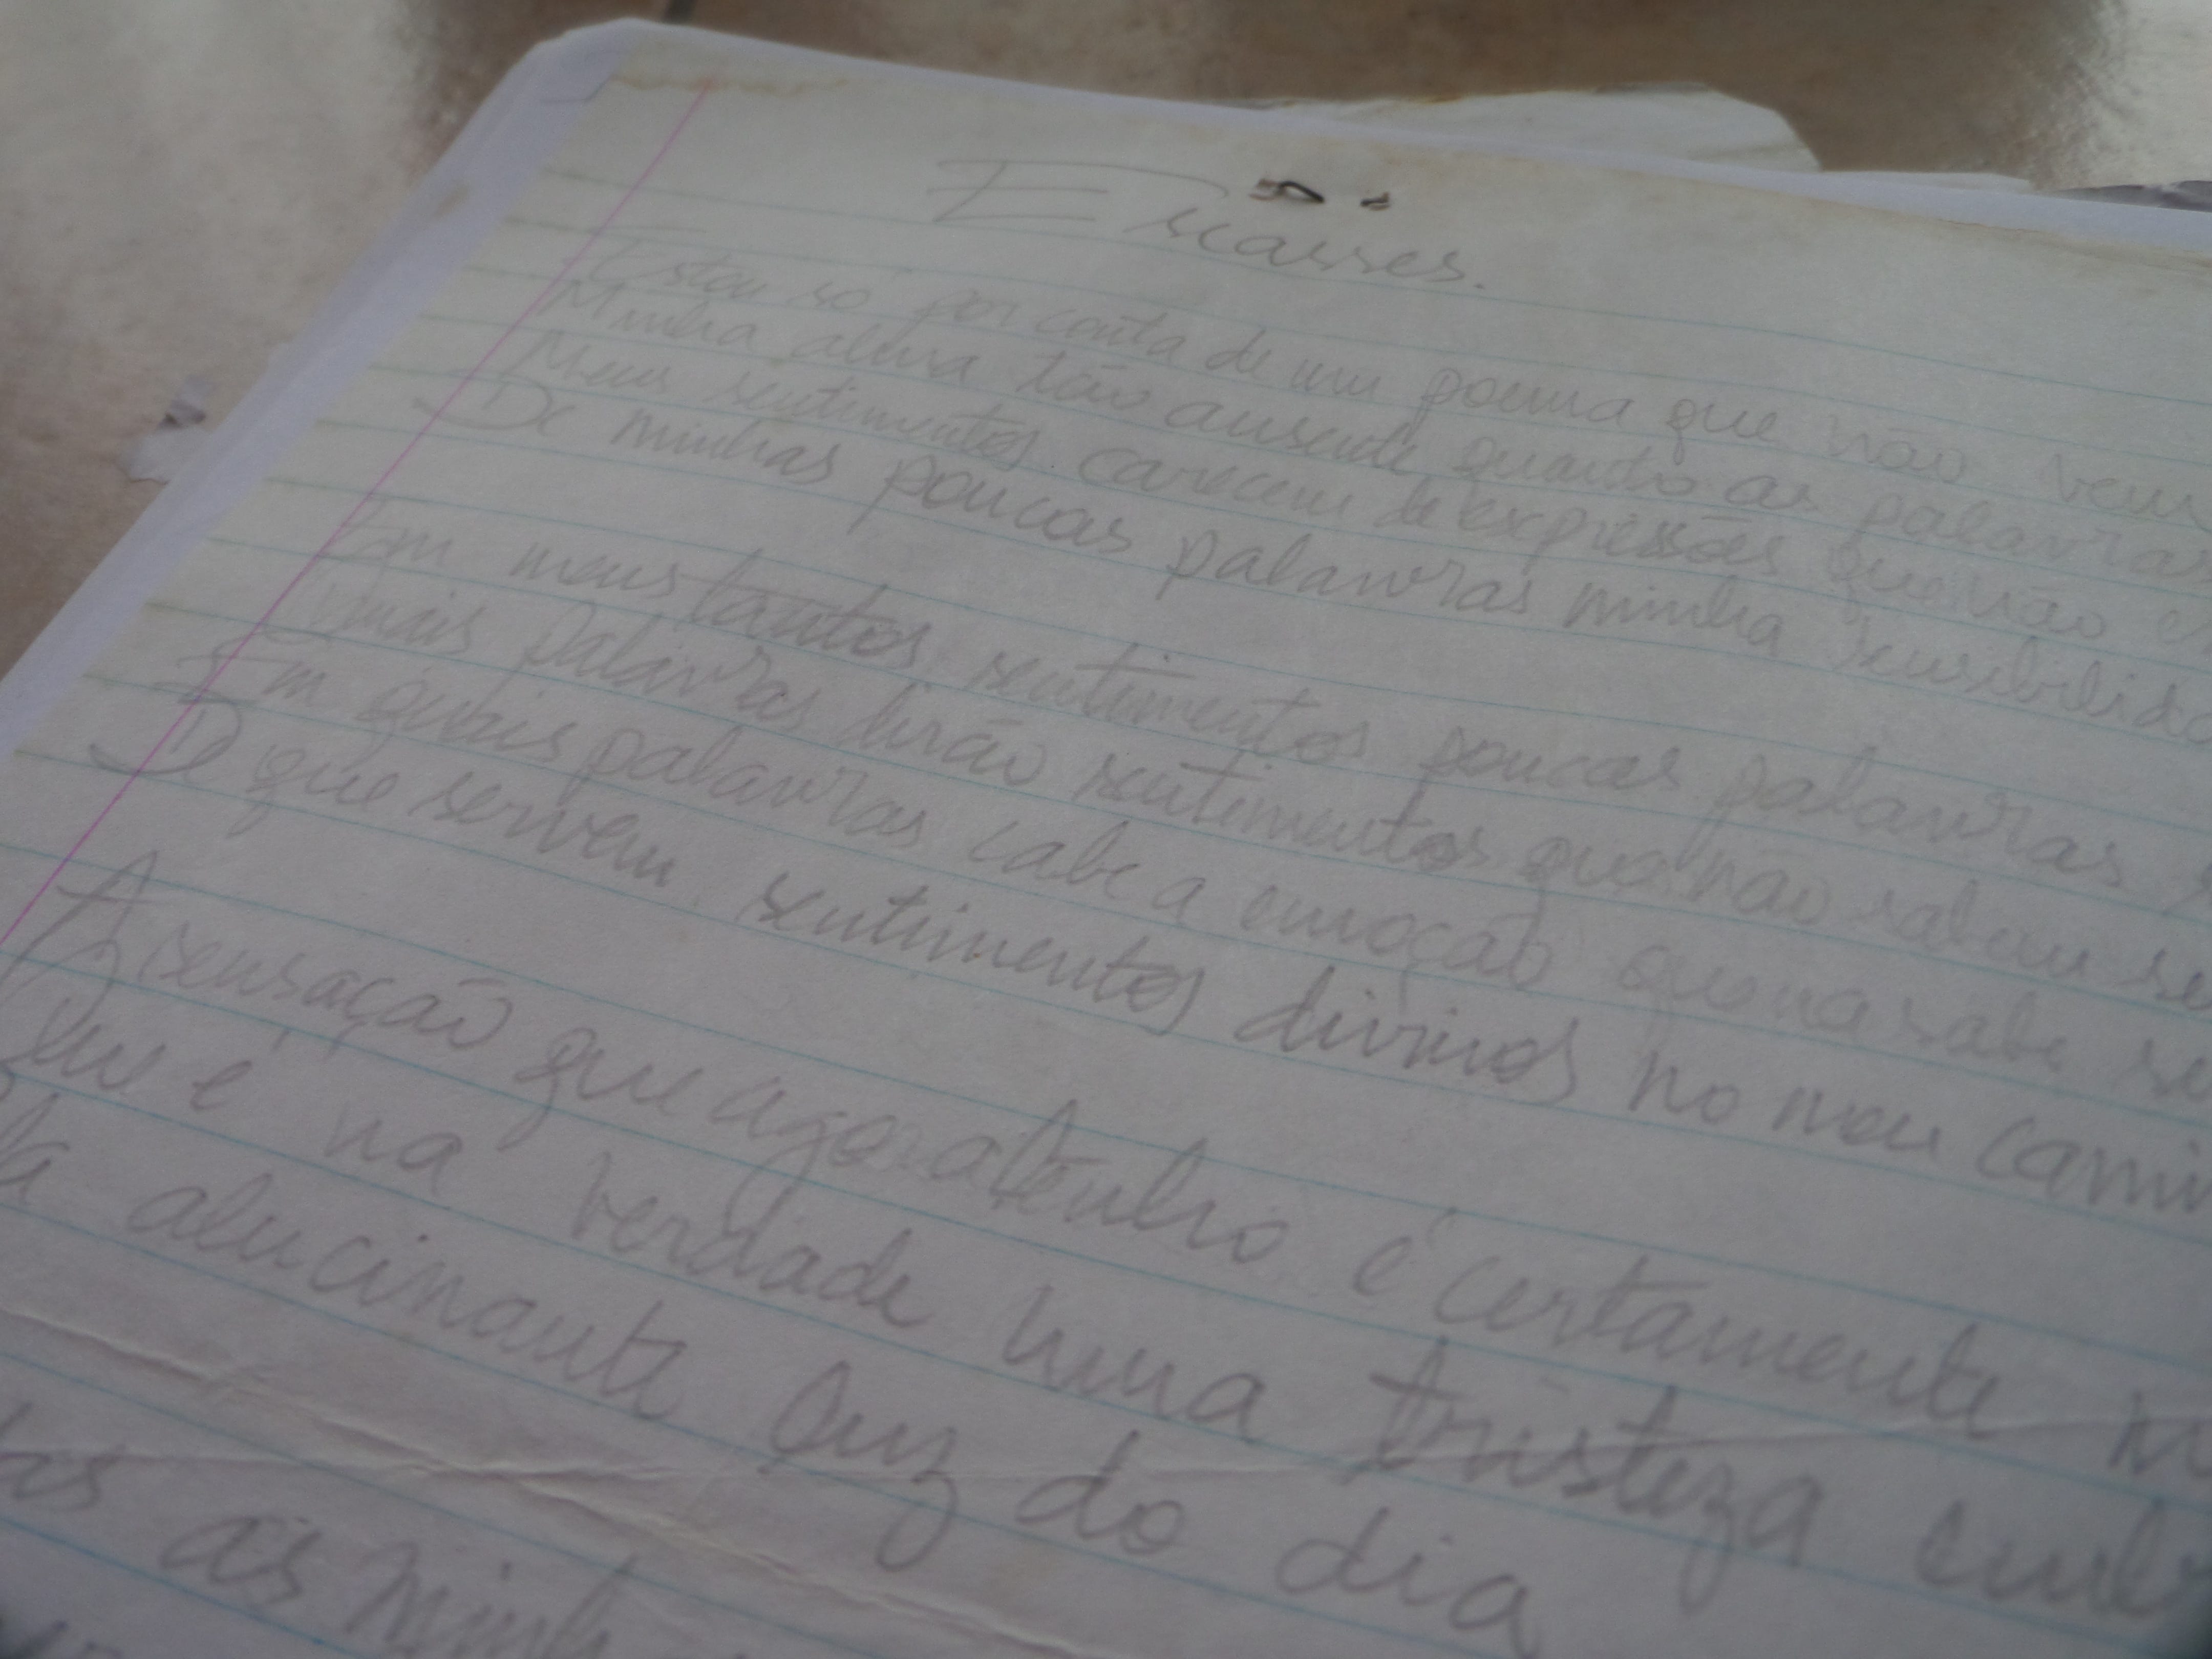 Escasses.
Estou só por conta de um poema que não vem
Minha alma tão ausente quanto as palavras
Meus sentimentos carecem de expressões que não
De minhas poucas palavras minha
Em meus tantos sentimentos poucas palavras
mais palavras dirão sentimentos que não sabem
Em quais palavras cabe a emoção que na sabe
De que servem sentimentos divinos no meu
A sensação que agora tenho é certamente
Que é na verdade uma tristeza
alucinante luz do dia
as